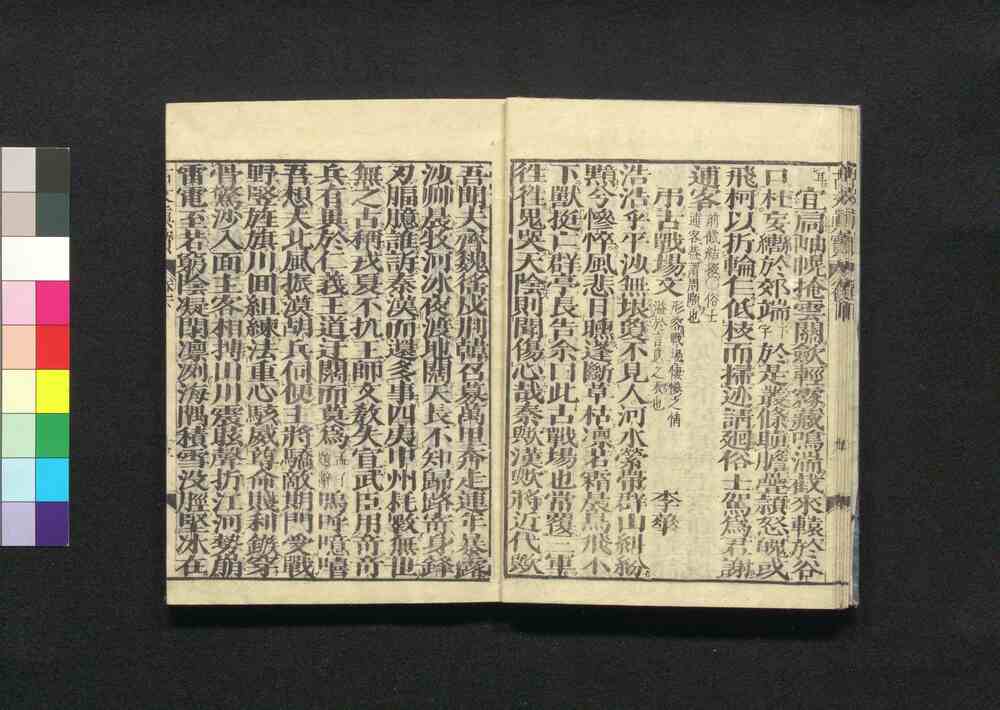 宜扃岫幌掩雲關歛輕霧藏鳴湍截來轅於谷
口杜妄轡於郊端於是叢條瞋膽疊穎怒魄或
飛柯以折輪乍低枝而掃迹請廻俗士駕爲君謝
逋客
弔古戰場文 形容戰場悽慘之情
溢於言意之表也 李華
浩浩乎平沙無垠敻不見人河水縈帶群山糾紛
黯兮慘悴風悲日曛蓬斷草枯凛若霜晨鳥飛不
下獸挺亡群亭長告余曰此古戰場也常覆三軍
往往鬼哭天陰則聞傷心哉秦歟漢歟將近代歟
吾聞夫齊魏徭戍荊韓召募萬里奔走連年暴露
沙草晨牧河冰夜渡地闊天長不知歸路寄身鋒
刃腷臆誰訴秦漢而還多事四夷中州耗斁無世
無之古稱戎夏不抗王師文教失宣武臣用奇奇
兵有異於仁義王道迂闊而莫爲嗚呼噫嘻
吾想夫北風振漠胡兵伺便主將驕敵期門受戰
野竪旌旗川回組練法重心駭威尊命賤利鏃穿
骨驚沙入面主客相搏山川震眩聲折江河勢崩
雷電至若窮陰凝閉凛冽海隅積雪没脛堅冰在